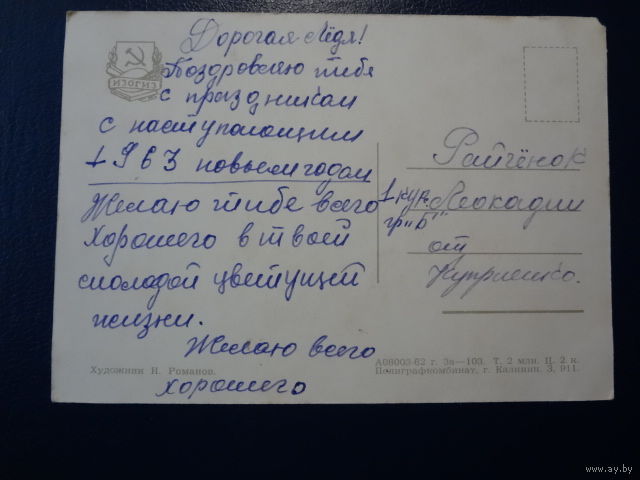 Дорогая Лідя!
Поздровляю тибе
с праздником
с наступающим
1963 новым годом
Желаю тибе всего
хорошего в твоей
молодой цветущей
жизни.
Желаю всего
хорошего
ИЗОГИЗ
Райчёнок
1 кур. Леокадии
гр. "Б"
от
Куприенко.
Художник Н. Романов.
А08003-62 г. За—103. Т. 2 млн. Ц. 2 к.
Полиграфкомбинат, г. Калинин. З. 911.
www.ay.by